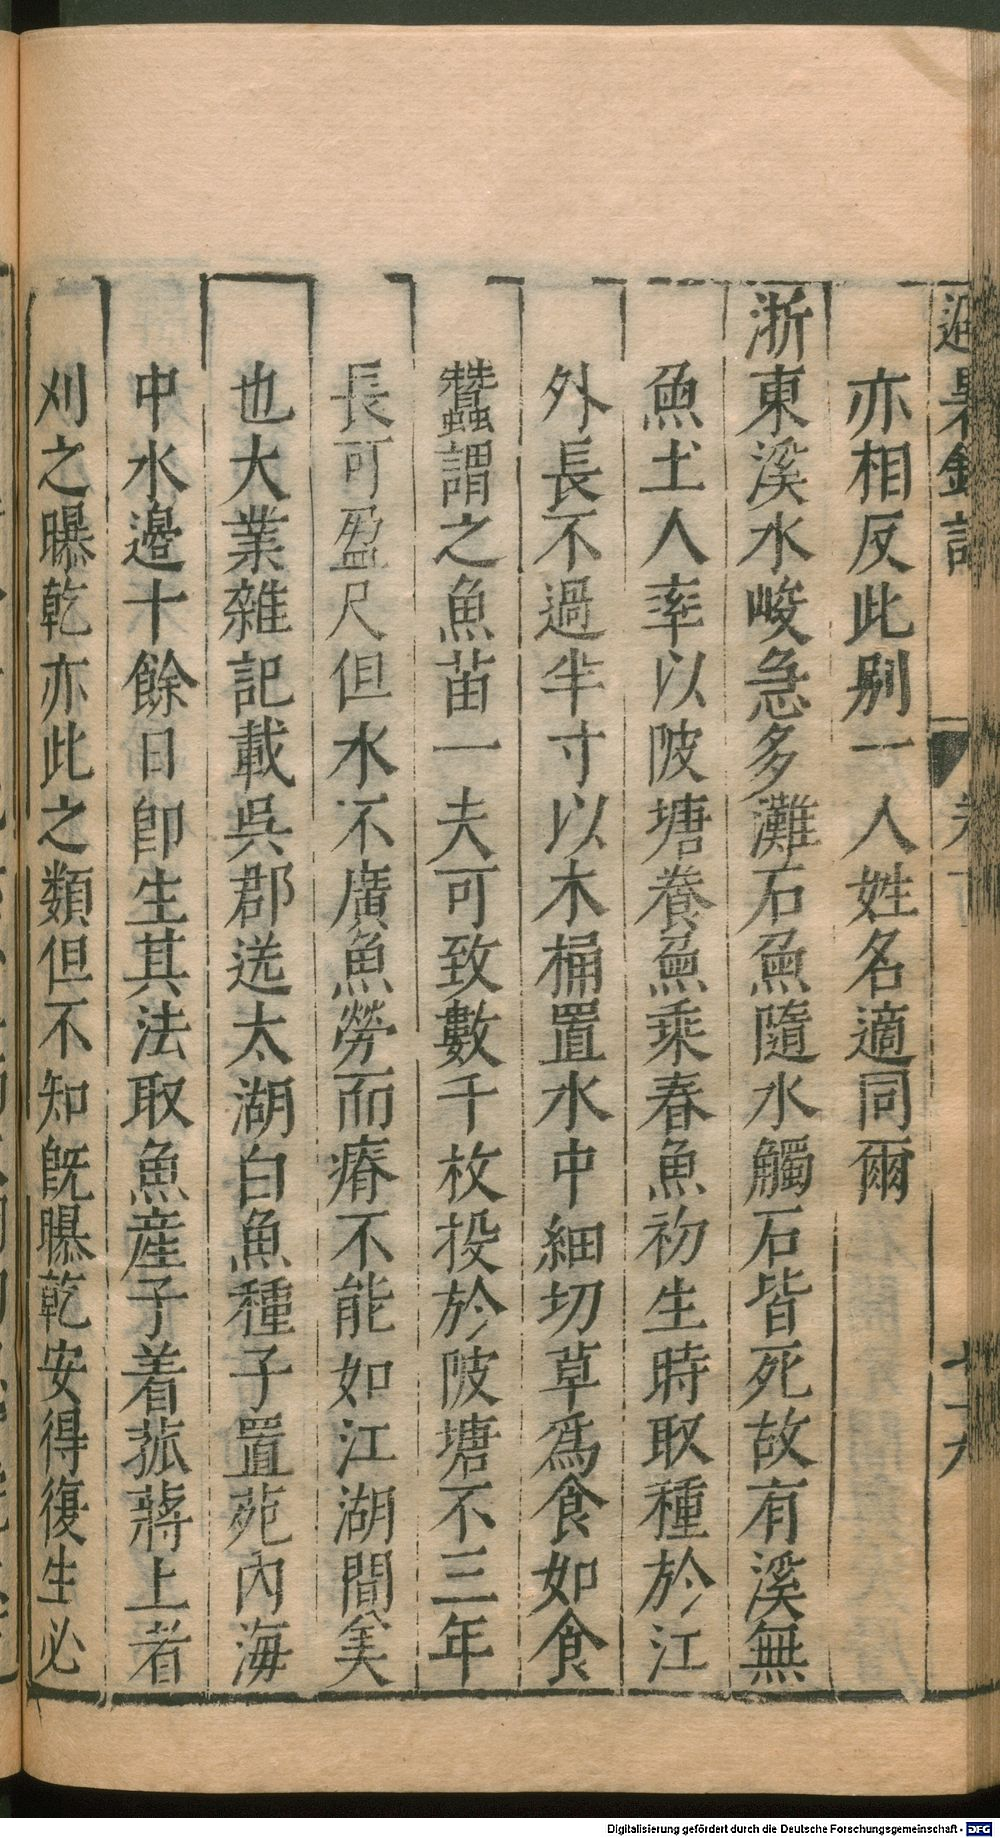 避暑錄話
卷下
七十九
亦相反此別一人姓名適同爾
浙東溪水峻急多灘石魚隨水觸石皆死故有溪無
魚土人率以陂塘養魚乘春魚初生時取種於江
外長不過半寸以木桶置水中細切草爲食如食
蠶謂之魚苗一夫可致數千枚投於陂塘不三年
長可盈尺但水不廣魚勞而瘠不能如江湖間美
也大業雜記載吳郡送太湖白魚種子置苑內海
中水邊十餘日卽生其法取魚産子着菰蔣上者
刈之曝乾亦此之類但不知旣曝乾安得復生必
Digitalisierung gefördert durch die Deutsche Forschungsgemeinschaft - DFG